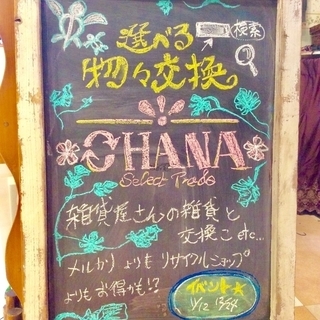 選べる
検索
物々交換。
OHANA
Select Trade
雑貨屋さんの雑貨と
交換こetc...
メルカリよりもリサイクルショップ
よりもお得かも!?
イベント☆
11/12